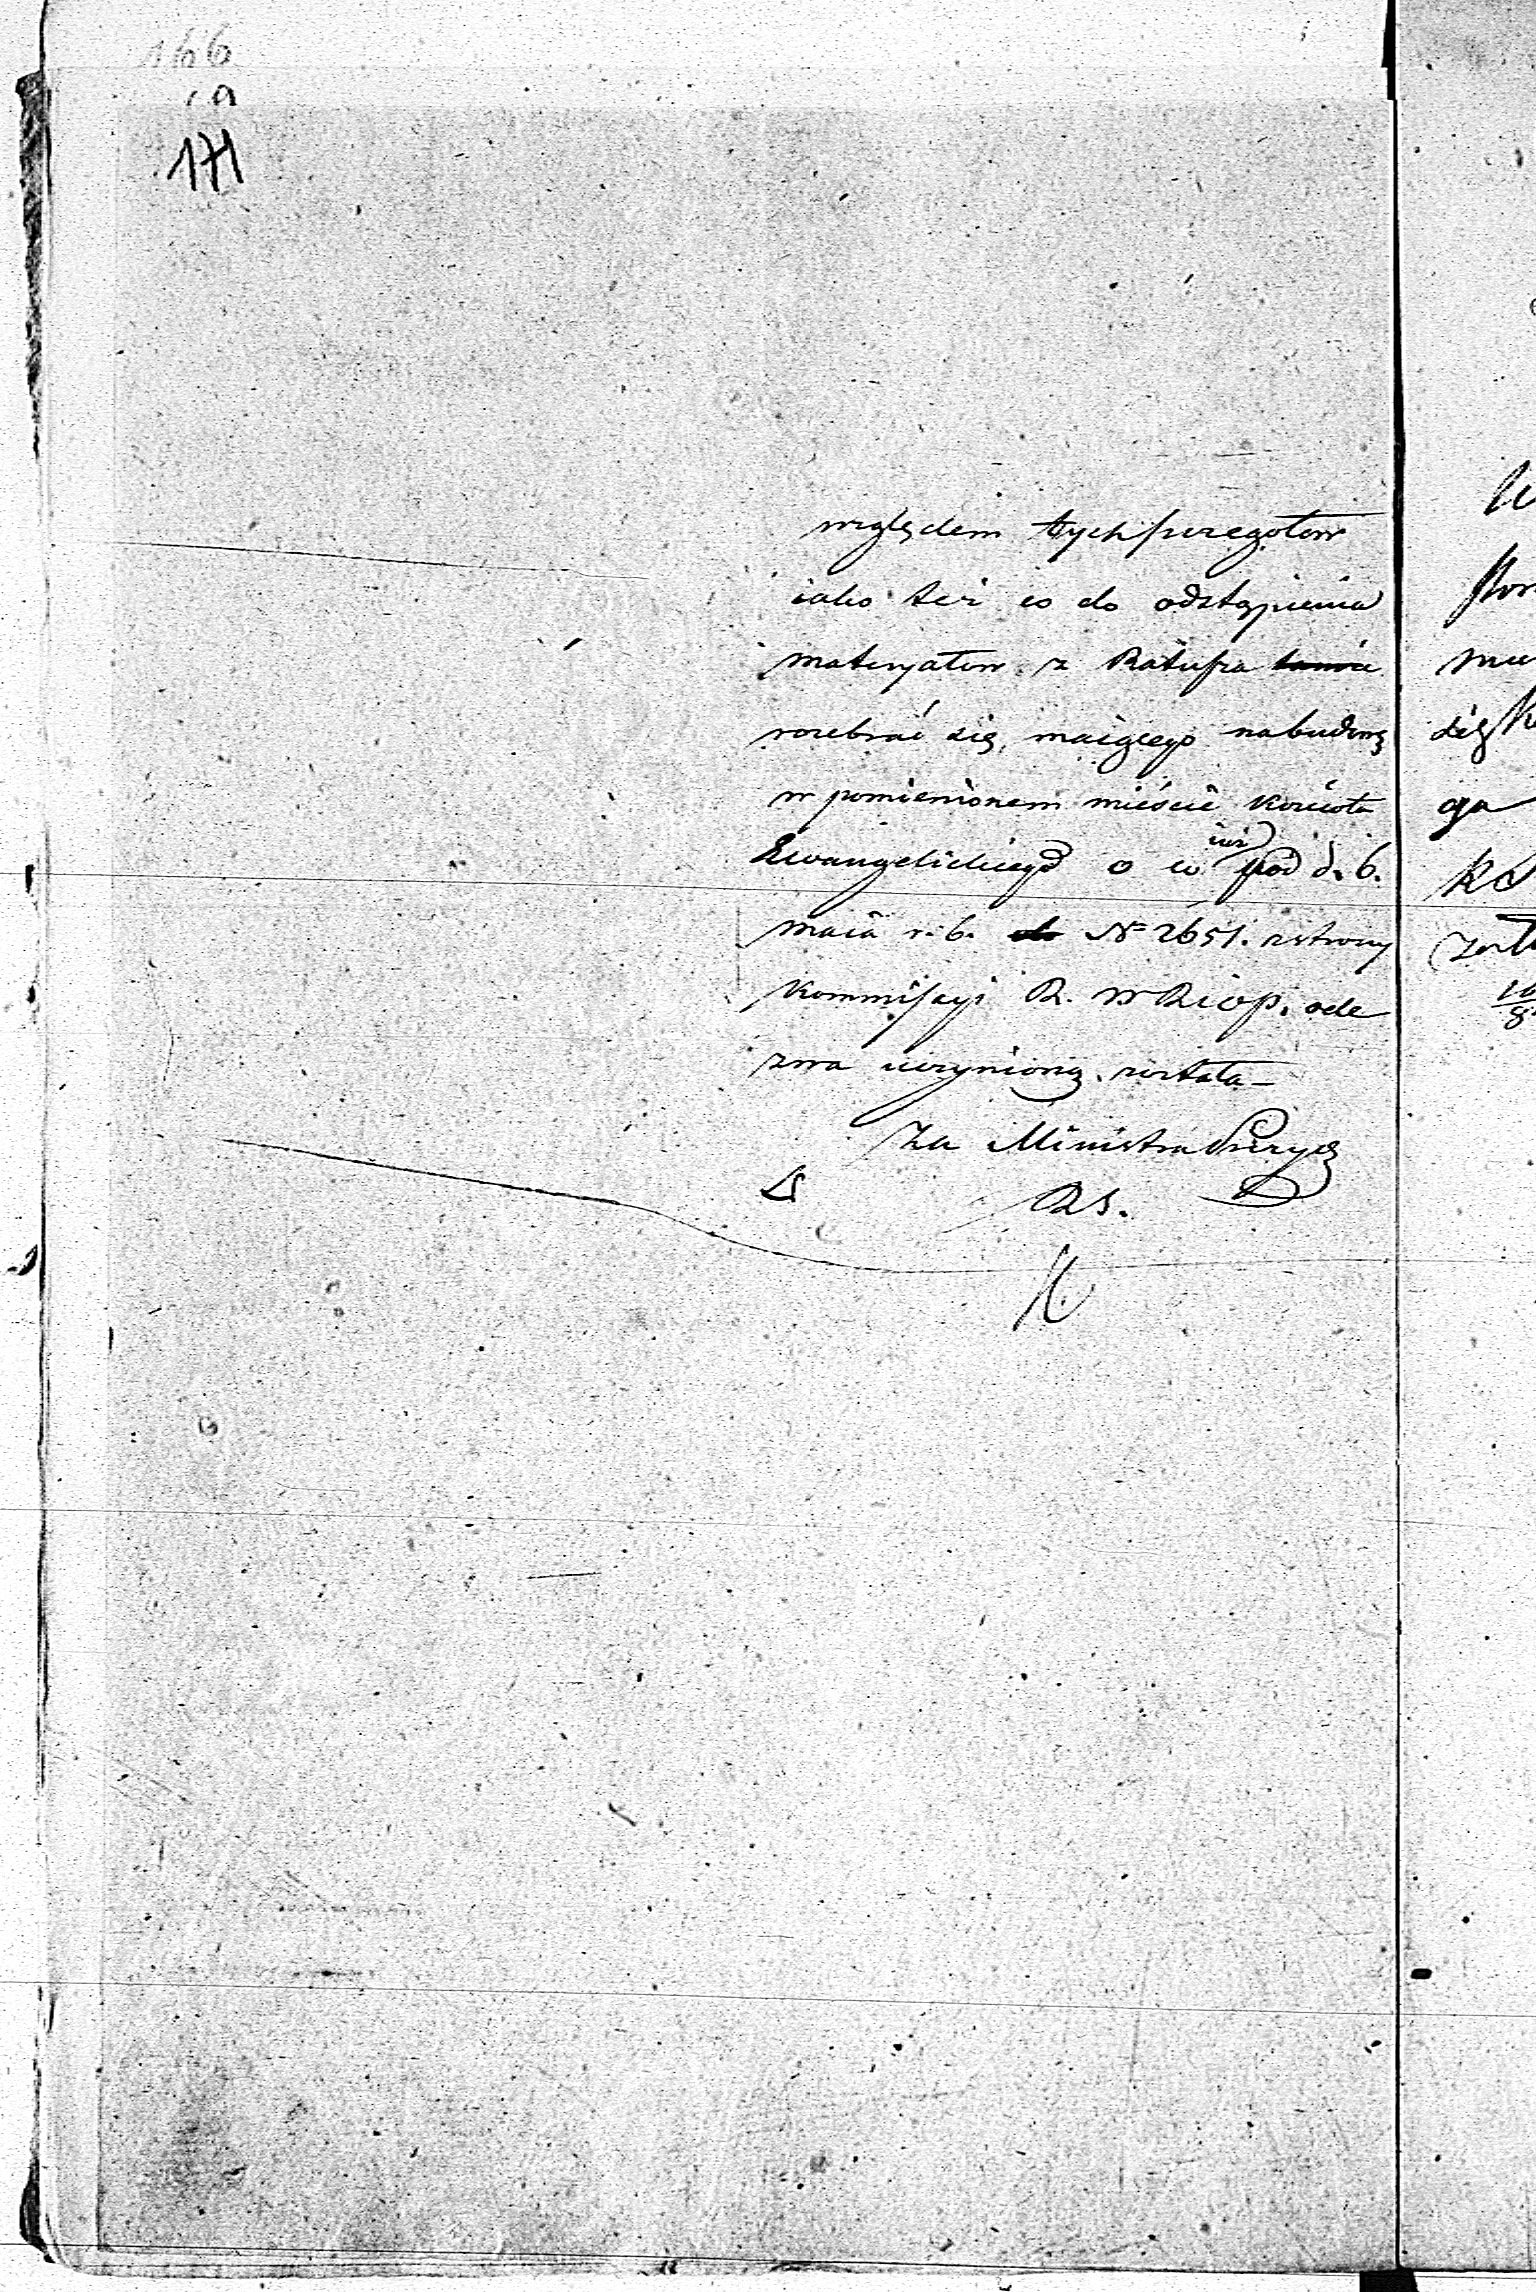 166
171
względem tych szczegołow
iako też co do odstąpienia
materyałow z Ratusza
rozebrać się maiącego na budowę
w pomienionem mieście kościoła
Ewangelickiego o co iuż pod d. 6.
maia r. b. № 2651. z strony
Kommissyi R. W R i O P. ode
zwa uczynioną została –
Za Ministra Prezyd
RS.